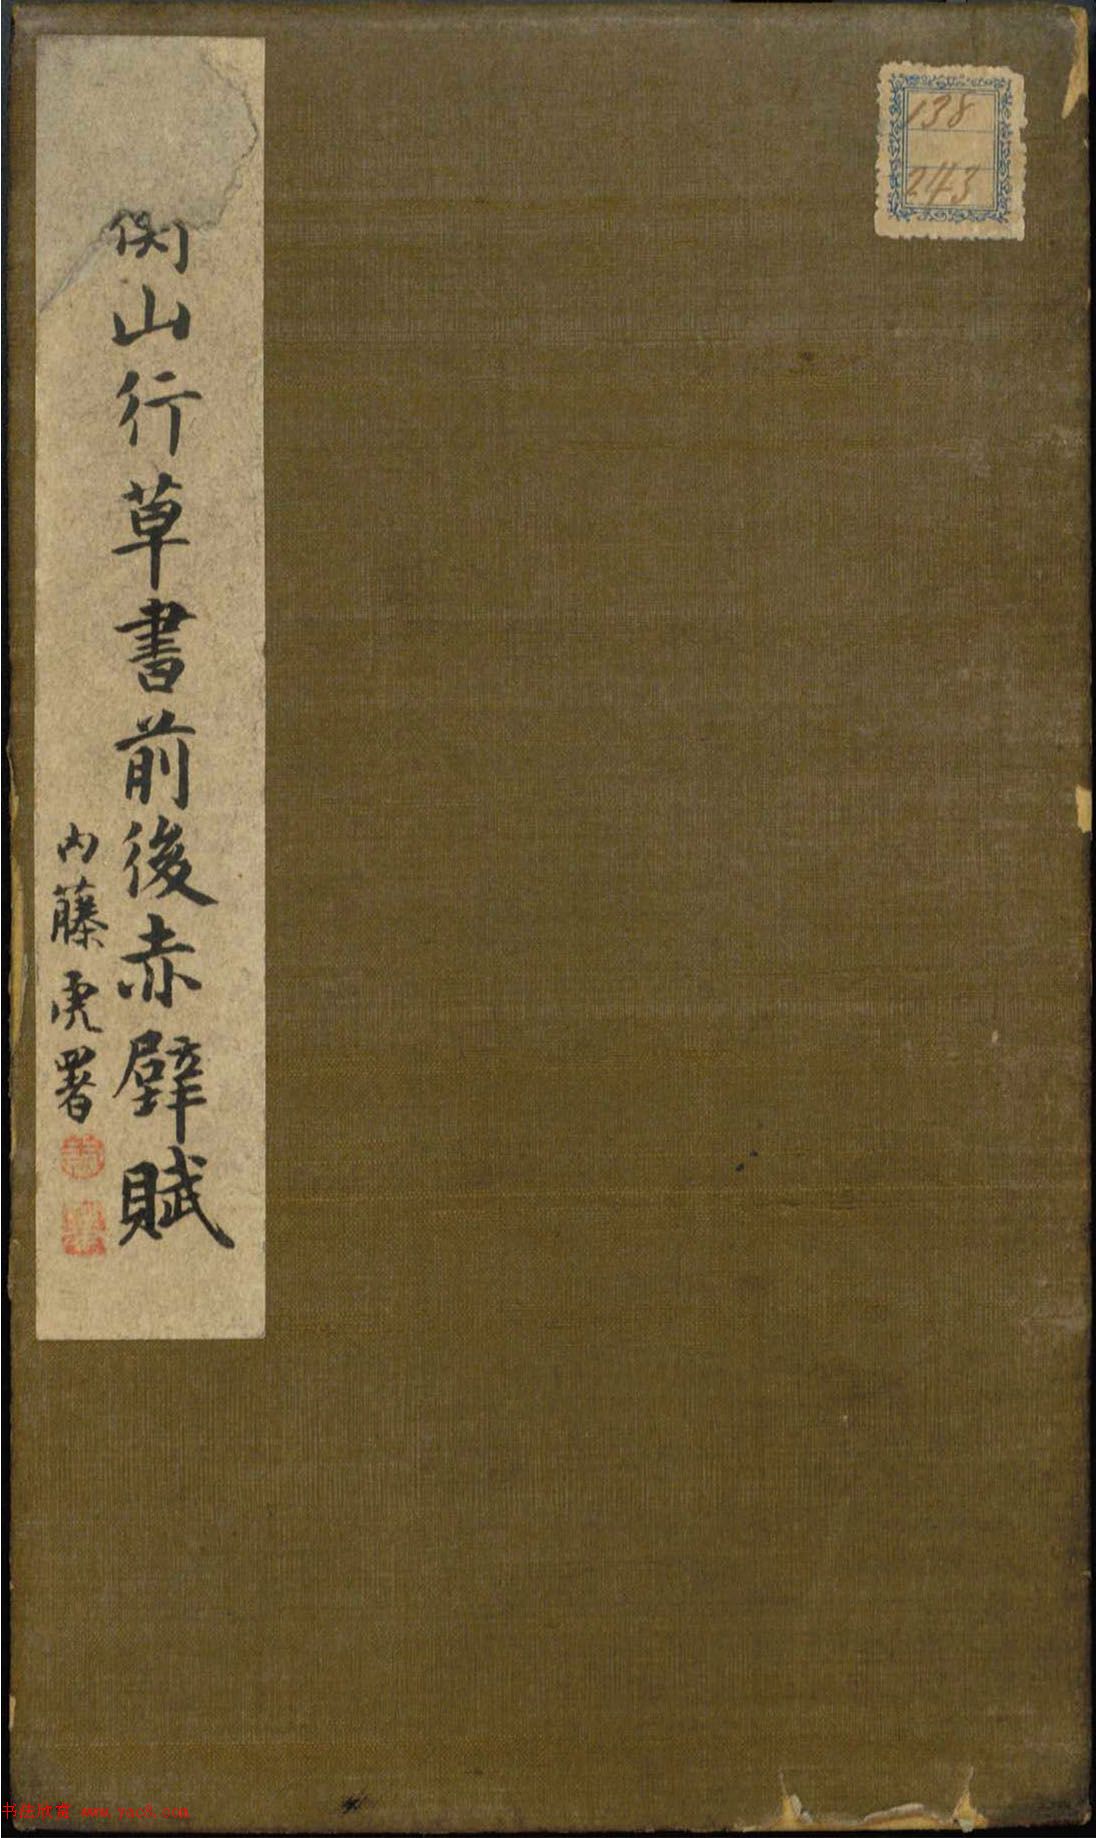 衡山行草書前後赤壁賦
内藤虎署
138
243
书法欣赏 www.yac8.com